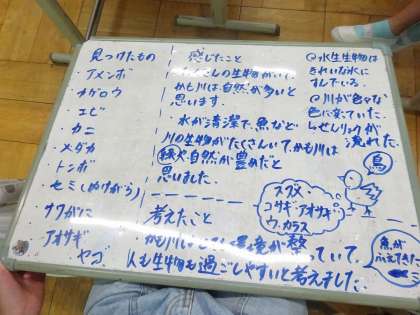 見つけたもの
アメンボ
カゲロウ
エビ
カニ
メダカ
トンボ
セミ(ぬけがら)
サワがに
アオサギ
ヤゴ
感じたこと
たくさんの生物がいて、
かも川は自然が多いと
思います。
水が清潔で、魚など
川の生物がたくさんいて、かも川は
緑や自然が豊かだと
思いました。
考えたこと
かも川は
環境が整っていて、
人も生物も過ごしやすいと考えました。
◎水生生物は
きれいな水に
すんでいる。
◎川が色々な
色に変っていた。
流れた。
鳥
スズメ
コサギ アオサギ
ウ カラス
魚が
ふえてきた